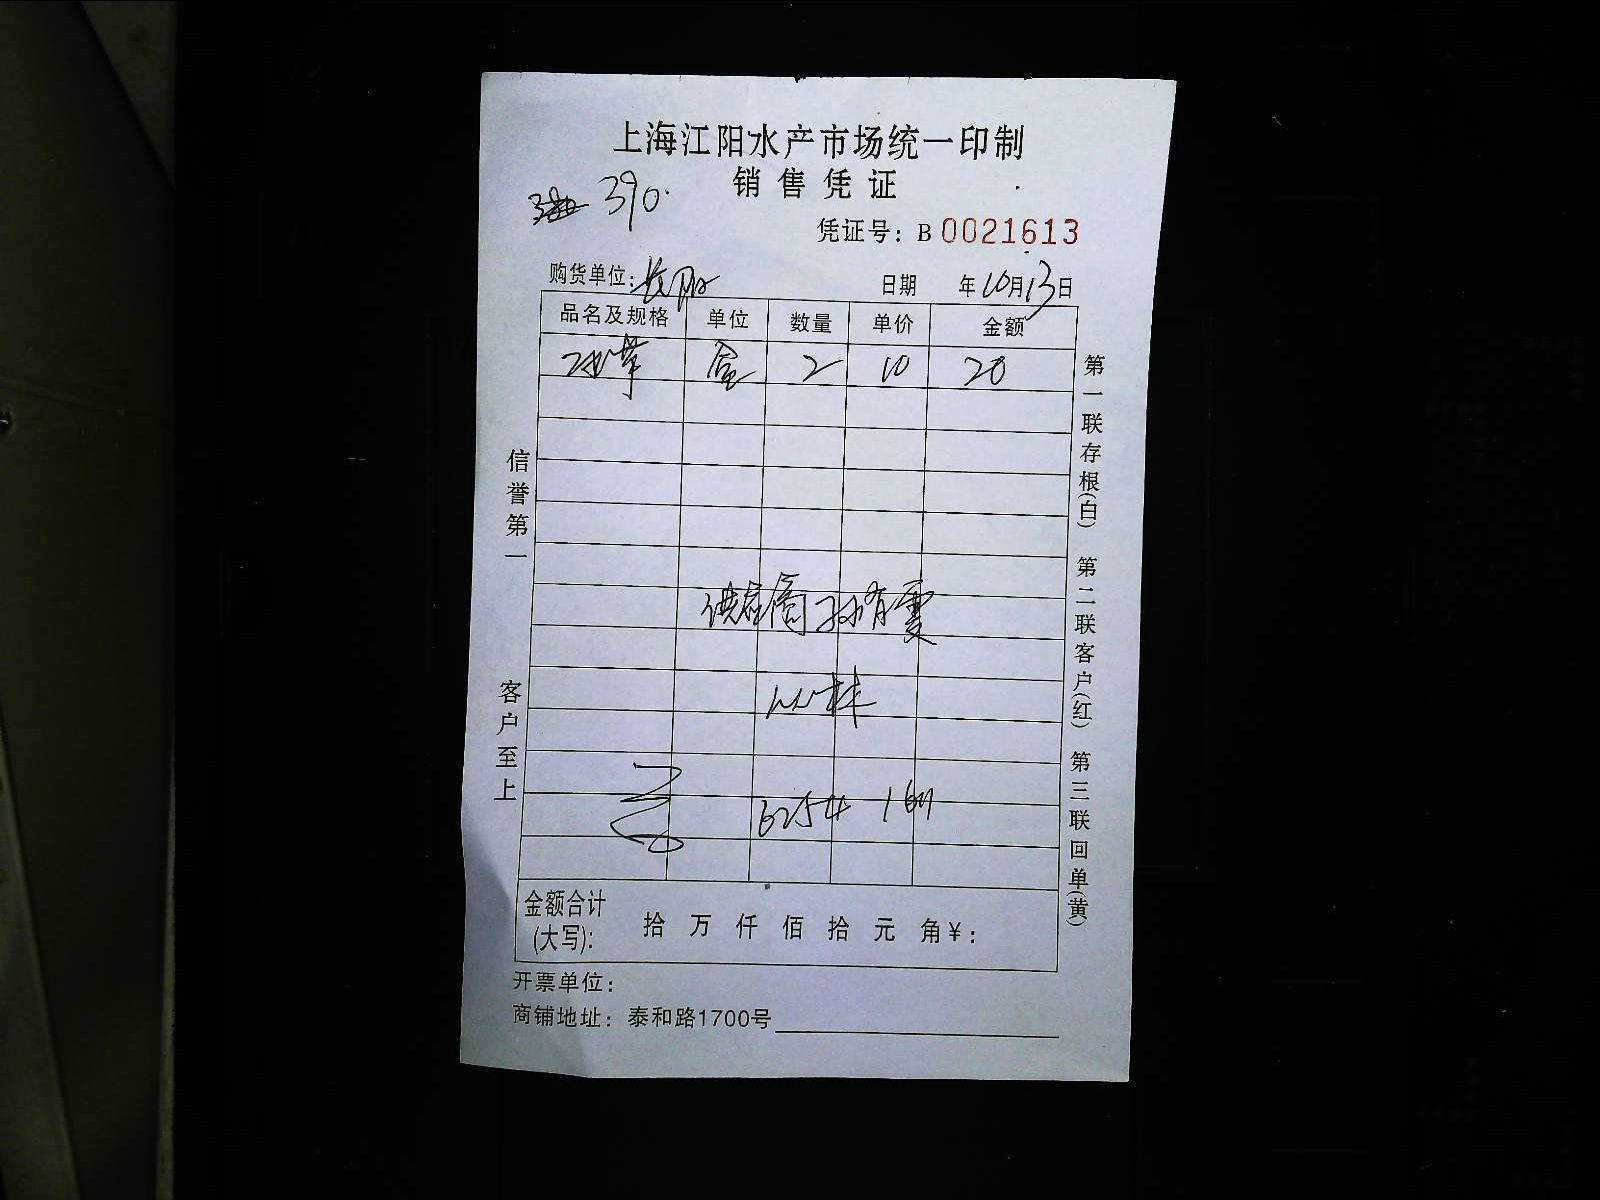 上海江阳水产市场统一印制
销售凭证
390
凭证号：B 0021613
购货单位：长阳 日期 年10月13日
品名及规格 单位 数量 单价 金额
盒 2 10 20
供应商 孙有霞
6254
金额合计(大写)： 拾 万 仟 佰 拾 元 角 ¥：
开票单位：
商铺地址：泰和路1700号
信誉第一 客户至上
第一联存根(白) 第二联客户(红) 第三联回单(黄)